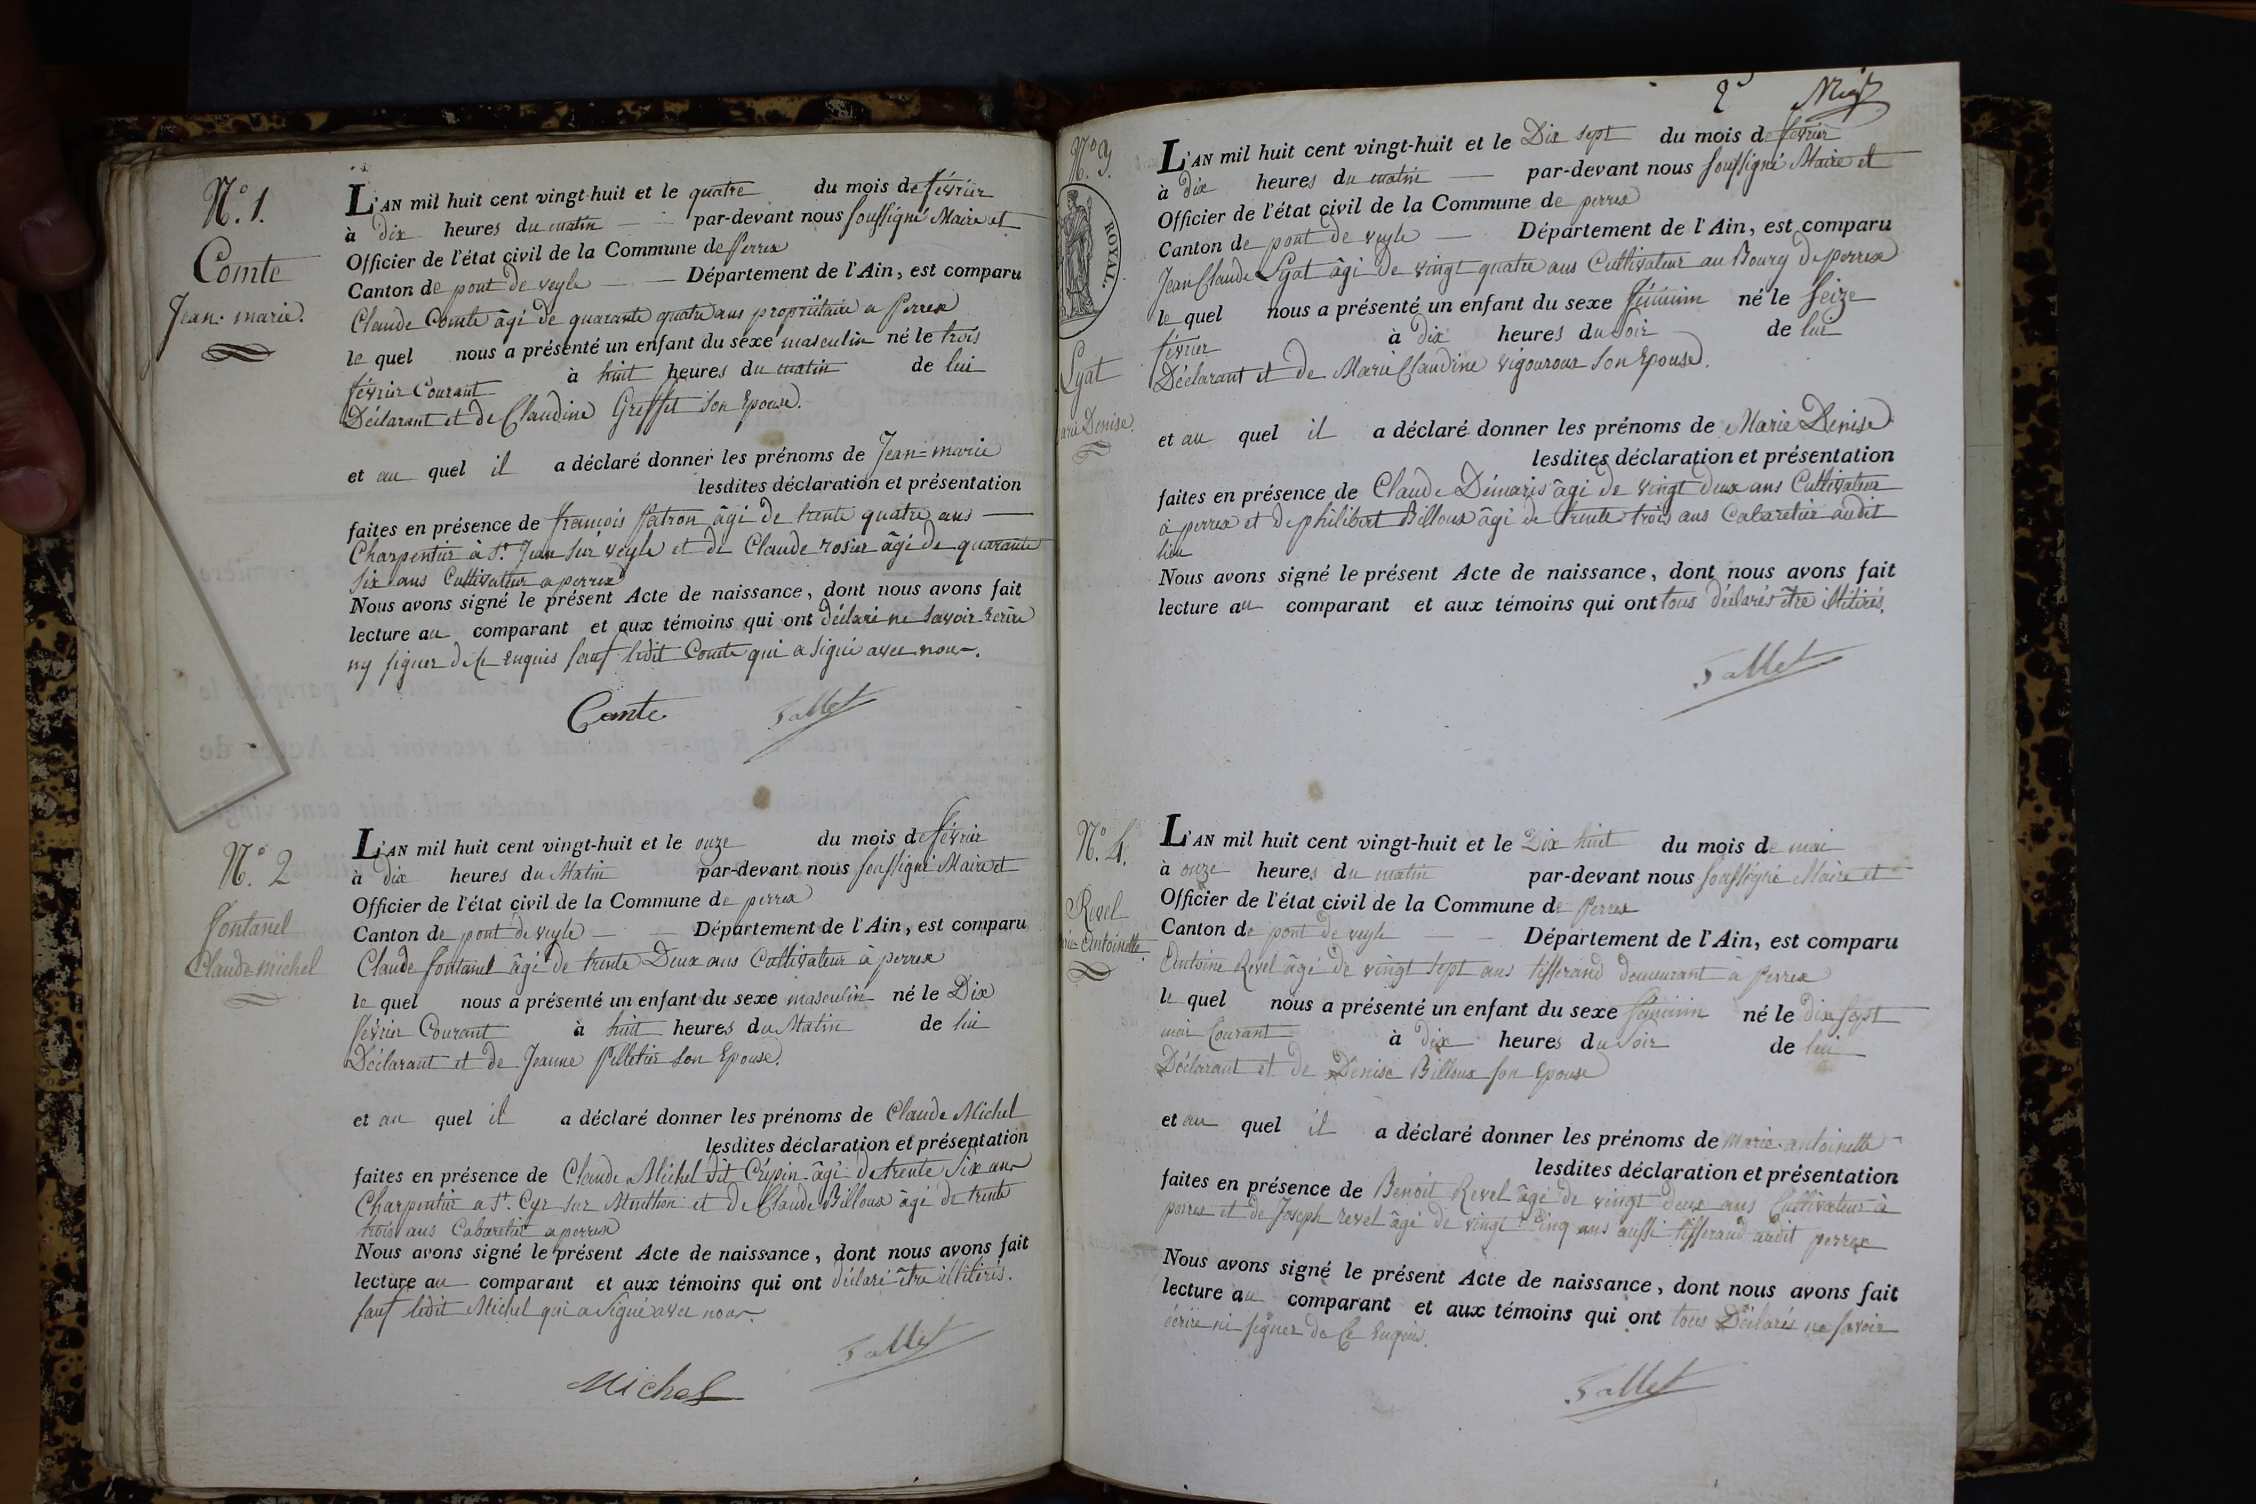 N.° 1.
Comte
Jean-marie.
L'AN mil huit cent vingt-huit et le quatre du mois de février
à dix heures du matin par-devant nous soussigné Maire et
Officier de l'état civil de la Commune de Perrex
Canton de pont de veyle Département de l'Ain, est comparu
Claude Comte âgé de quarante quatre ans propriétaire a Perrex
le quel nous a présenté un enfant du sexe masculin né le trois
février Courant à huit heures du matin de lui
Déclarant et de Claudine Greffet son Epouse.
et au quel il a déclaré donner les prénoms de Jean-marie
lesdites déclaration et présentation
faites en présence de françois Patron âgé de trente quatre ans
Charpentier à St. Jean sur veyle et de Claude rosier âgé de quarante
six ans Cultivateur a perrex
Nous avons signé le présent Acte de naissance, dont nous avons fait
lecture au comparant et aux témoins qui ont déclaré ne savoir écrire
ny signer de ce enquis sauf ledit Comte qui a signé avec nous.
Comte Tallet
N.° 2
fontanel
Claude michel
L'AN mil huit cent vingt-huit et le onze du mois de février
à dix heures du Matin par-devant nous soussigné Maire et
Officier de l'état civil de la Commune de perrex
Canton de pont de veyle Département de l'Ain, est comparu
Claude fontanel âgé de trente Deux ans Cultivateur à perrex
le quel nous a présenté un enfant du sexe masculin né le Dix
février Courant à huit heures du Matin de lui
Déclarant et de Jeanne Pelletier son Epouse.
et au quel il a déclaré donner les prénoms de Claude Michel
lesdites déclaration et présentation
faites en présence de Claude Michel dit Crépin âgé de trente six ans
Charpentier a St. Cyr sur Menthon et de Claude Billoux âgé de trente
trois ans Cabaretier a perrex
Nous avons signé le présent Acte de naissance, dont nous avons fait
lecture au comparant et aux témoins qui ont déclaré être illitérés.
sauf ledit Michel qui a signé avec nous.
Tallet
Michel
2e
N.° 3.
ROYAL.
Lyat
arie Denise.
L'AN mil huit cent vingt-huit et le Dix sept du mois de février
à dix heures du matin par-devant nous soussigné Maire et
Officier de l'état civil de la Commune de perrex
Canton de pont de veyle Département de l'Ain, est comparu
Jean Claude Lyat âgé de vingt quatre ans Cultivateur au Bourg de perrex
le quel nous a présenté un enfant du sexe féminin né le seize
février à dix heures du soir de lui
Déclarant et de Marie Claudine vigouroux son Epouse.
et au quel il a déclaré donner les prénoms de Marie Denise
lesdites déclaration et présentation
faites en présence de Claude Démaris âgé de vingt deux ans Cultivateur
à perrex et de philibert Billoux âgé de trente trois ans Cabaretier audit
lieu
Nous avons signé le présent Acte de naissance, dont nous avons fait
lecture au comparant et aux témoins qui ont tous déclarés être illitérés.
Tallet
N.° 4.
Revel
rie Antoinette.
L'AN mil huit cent vingt-huit et le Dix huit du mois de mai
à onze heures du matin par-devant nous soussigné Maire et
Officier de l'état civil de la Commune de Perrex
Canton de pont de veyle Département de l'Ain, est comparu
Antoine Revel âgé de vingt sept ans tisserand demeurant à Perrex
le quel nous a présenté un enfant du sexe féminin né le dix sept
mai Courant à dix heures du soir de lui
Déclarant et de Denise Billoux son Epouse
et au quel il a déclaré donner les prénoms de marie-antoinette
lesdites déclaration et présentation
faites en présence de Benoit Revel âgé de vingt deux ans Cultivateur à
perrex et de Joseph revel âgé de vingt Cinq ans aussi tisserand audit perrex
Nous avons signé le présent Acte de naissance, dont nous avons fait
lecture au comparant et aux témoins qui ont tous Déclarés ne savoir
écrire ni signer de Ce Enquis.
Tallet